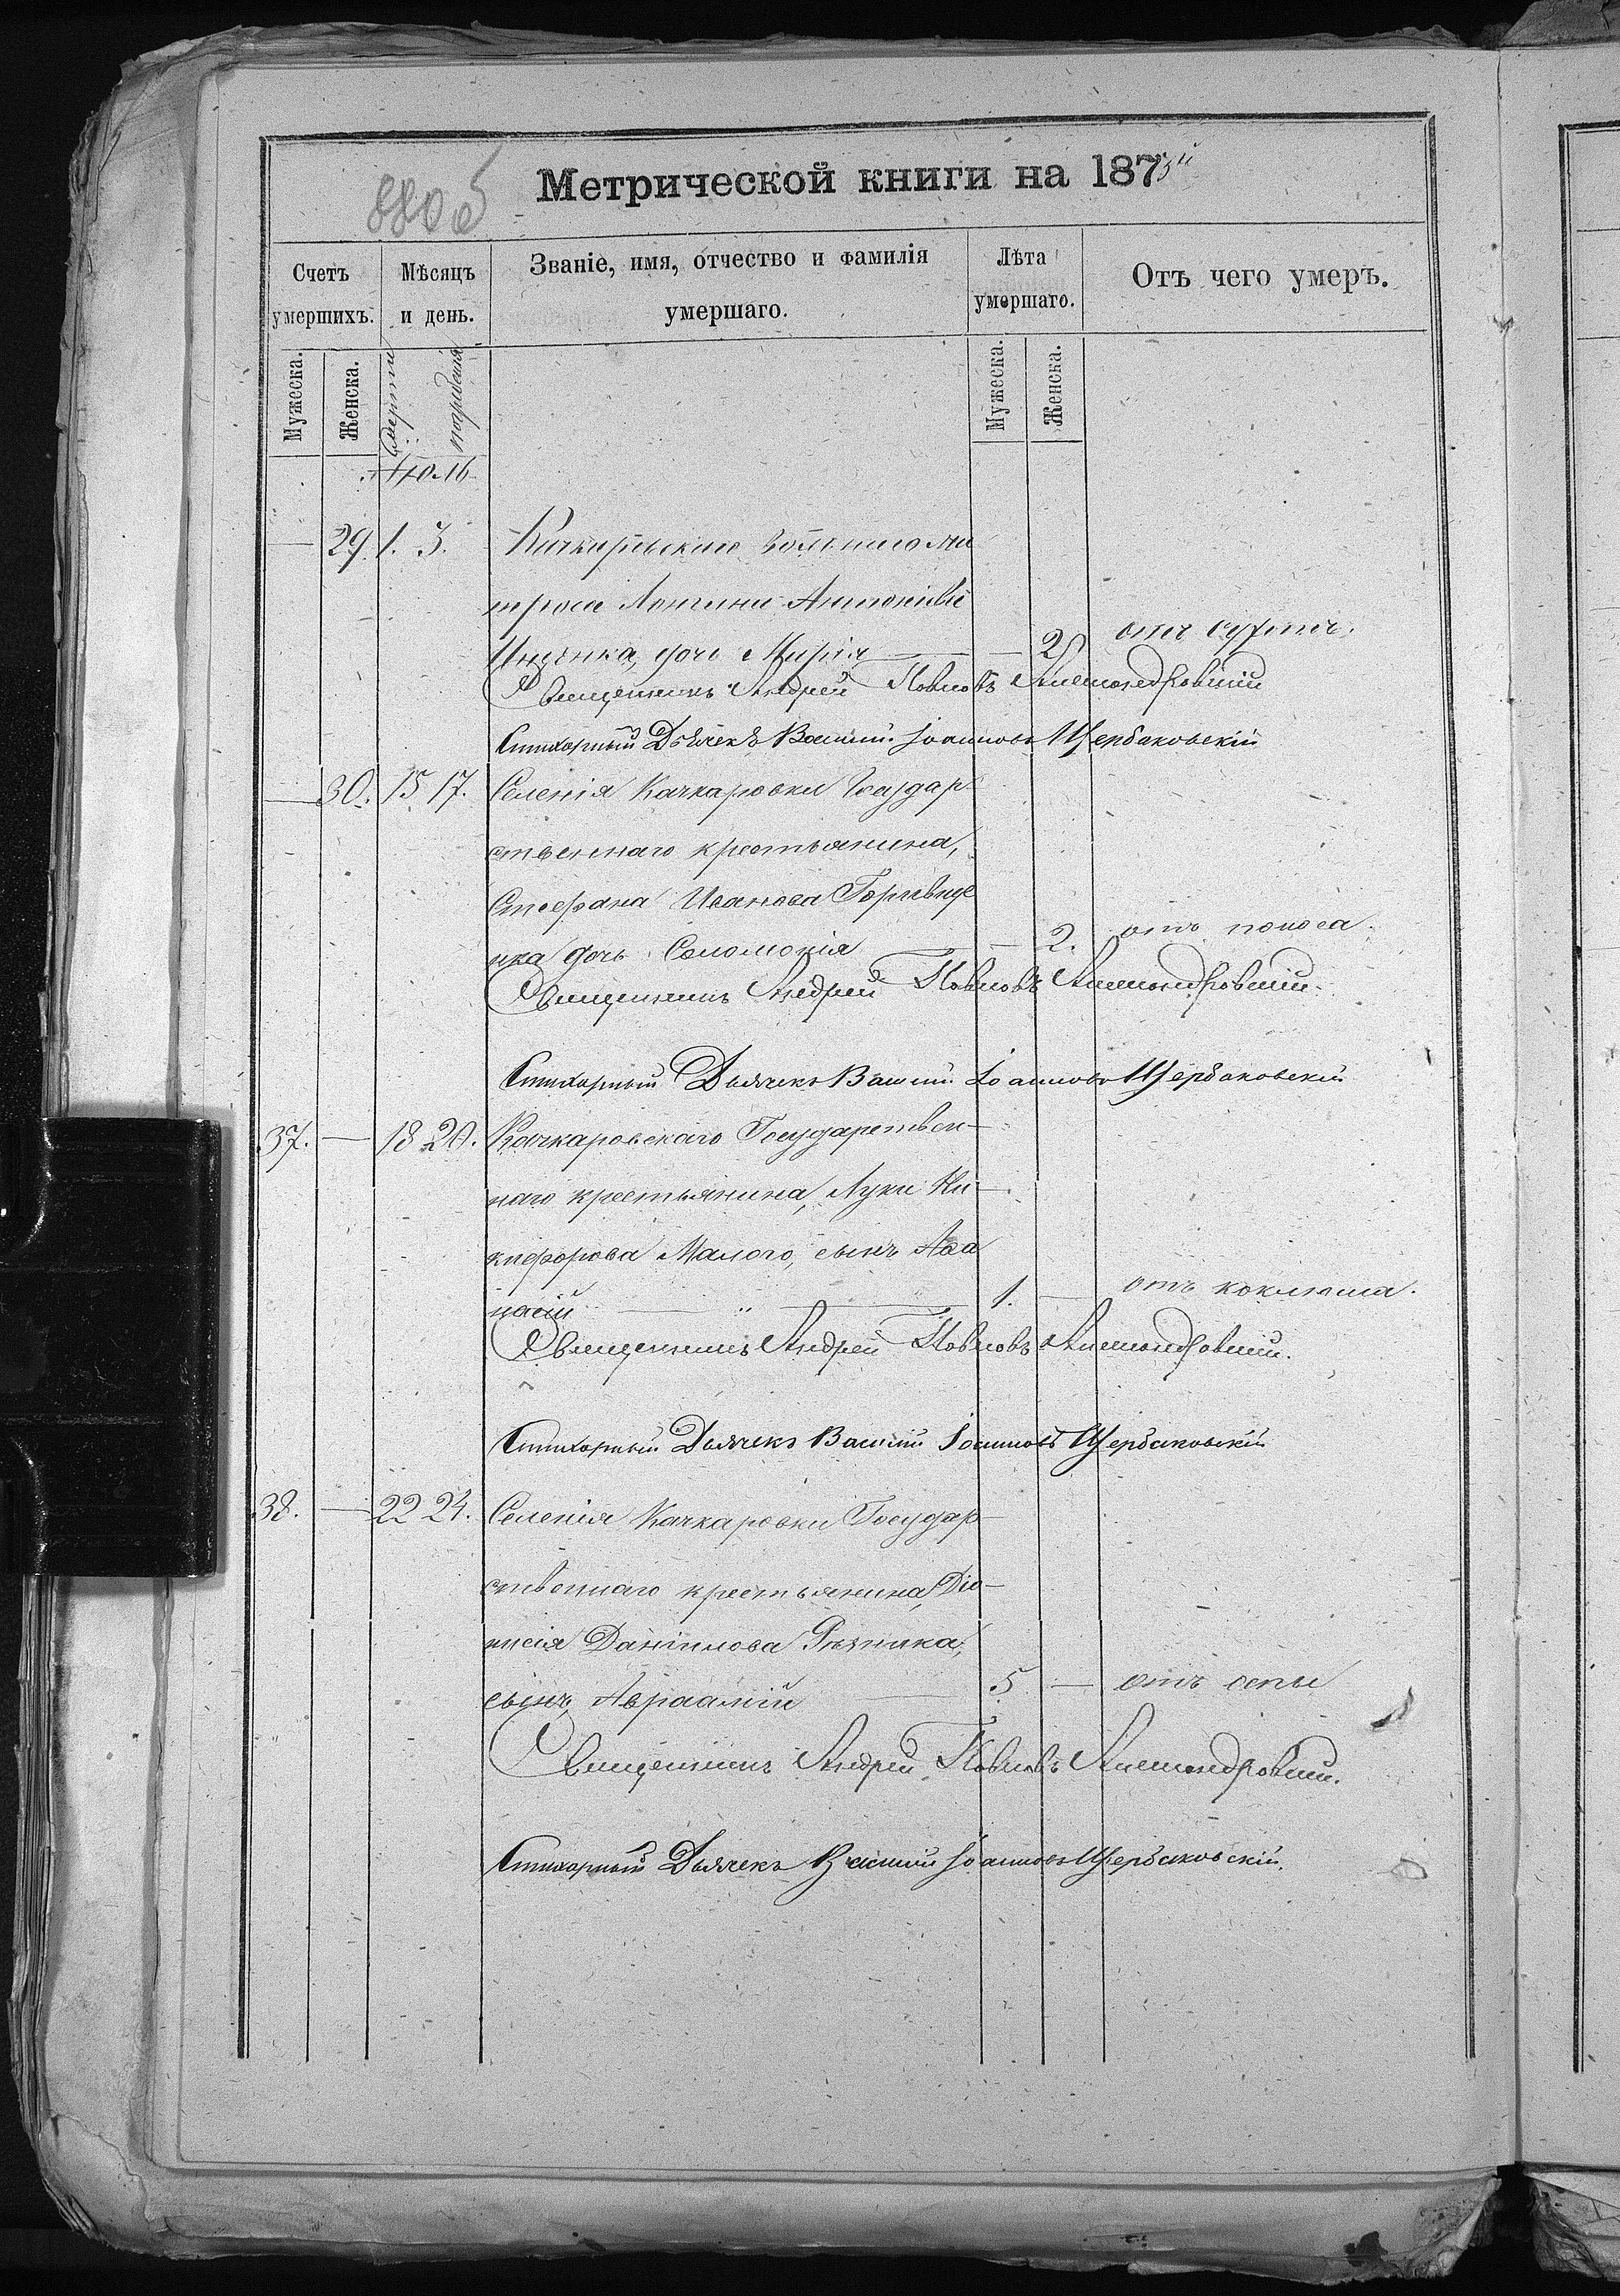 880 об
Метрической книги на 1875й
Счетъ умершихъ.
Мѣсяцъ и день.
Званіе, имя, отчество и фамилія умершаго.
Лѣта умершаго.
Отъ чего умеръ.
Мужеска.
Женска.
Смерти
погребенія
Мужеска.
Женска.
— 29. 1. 3. Качкаровскаго вольнаго ма
троса Лонгина Антоніева
дочь Марія — — 2
Священникъ Андрей Павловъ Александровскій
Стихарный Дьячекъ Василій Іоанновъ Щербаковскій
— 30. 15 17. Селенія Качкаровки Государ
ственнаго крестьянина,
Стефана Иванова
нка дочь Соломонія — 2. отъ поноса.
Священникъ Андрей Павловъ Александровскій.
Стихарный Дьячекъ Василій Іоанновъ Щербаковскій
37. — 18 20. Качкаровскаго Государствен—
наго крестьянина, Луки Ни—
кифорова Малого, сынъ Аѳа
насій — " — 1. — отъ коклюша.
Священникъ Андрей Павловъ Александровскій.
Стихарный Дьячекъ Василій Іоанновъ Щербаковскій
38. — 22 24. Селенія Качкаровки Государ—
ственнаго крестьянина, Діо—
нисія Даніилова Рѣзника,
сынъ Авраамій — 5 — отъ оспы
Священникъ Андрей Павловъ Александровскій.
Стихарный Дьячекъ Василій Іоанновъ Щербаковскій.